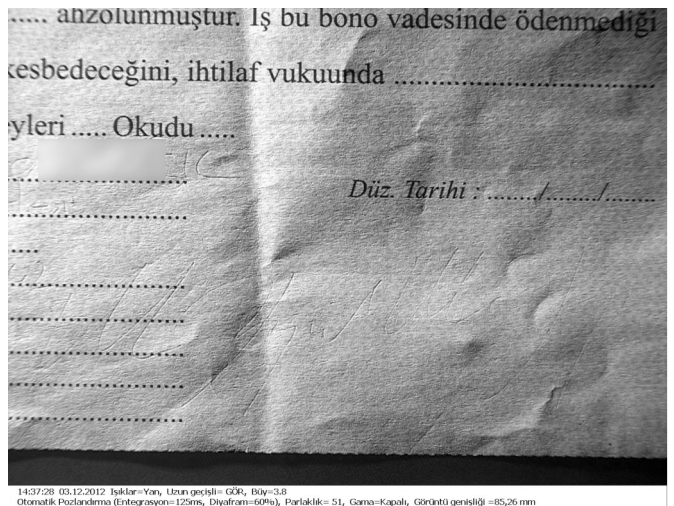 ..... ahzolunmuştur. İş bu bono vadesinde ödenmediği
kesbedeceğini, ihtilaf vukuunda ..............................
eyleri ..... Okudu .....
Düz. Tarihi : ......../......../.......
14:37:28 03.12.2012 Işıklar=Yan, Uzun geçişli= GÖR, Büy=3.8
Otomatik Pozlandırma (Entegrasyon=125ms, Diyafram=60%), Parlaklık= 51, Gama=Kapalı, Görüntü genişliği =85,26 mm